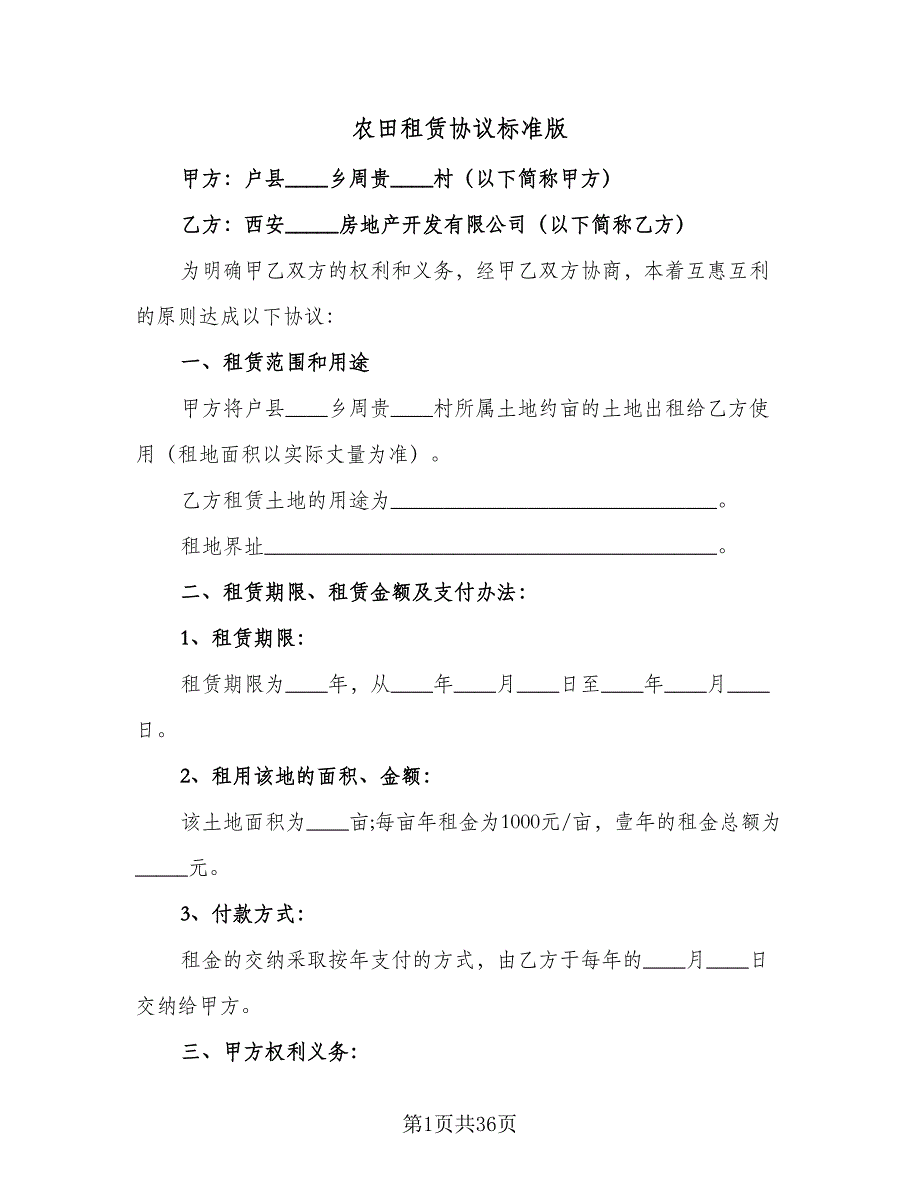 农田租赁协议标准版
甲方：户县____乡周贵____村（以下简称甲方）
乙方：西安_____房地产开发有限公司（以下简称乙方）
为明确甲乙双方的权利和义务，经甲乙双方协商，本着互惠互利
的原则达成以下协议：
一、租赁范围和用途
甲方将户县____乡周贵____村所属土地约亩的土地出租给乙方使
用（租地面积以实际丈量为准）。
乙方租赁土地的用途为_______________________________。
租地界址___________________________________________。
二、租赁期限、租赁金额及支付办法：
1、租赁期限：
租赁期限为____年，从____年____月____日至____年____月____
日。
2、租用该地的面积、金额：
该土地面积为____亩;每亩年租金为1000元/亩，壹年的租金总额为
_____元。
3、付款方式：
租金的交纳采取按年支付的方式，由乙方于每年的____月____日
交纳给甲方。
三、甲方权利义务：
第1页共36页